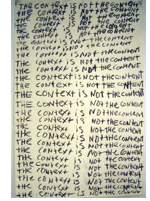 THE CONTEXT IS NOT THE CONTENT
THE CONTEXT IS NOT THE CONTENT
THE CONTEXT IS NOT THE CONTENT
THE CONTEXT IS NOT THE CONTENT
THE CONTEXT IS NOT THE CONTENT
THE CONTEXT IS NOT THE CONTENT
THE CONTEXT IS NOT THE CONTENT
THE CONTEXT IS NOT THE CONTENT
THE CONTEXT IS NOT THE CONTENT
THE CONTEXT IS NOT THE CONTENT
THE CONTEXT IS NOT THE CONTENT
THE CONTEXT IS NOT THE CONTENT
THE CONTEXT IS NOT THE CONTENT
THE CONTEXT IS NOT THE CONTENT
THE CONTEXT IS NOT THE CONTENT
THE CONTEXT IS NOT THE CONTENT
THE CONTEXT IS NOT THE CONTENT
THE CONTEXT IS NOT THE CONTENT
THE CONTEXT IS NOT THE CONTENT
THE CONTEXT IS NOT THE CONTENT
THE CONTEXT IS NOT THE CONTENT